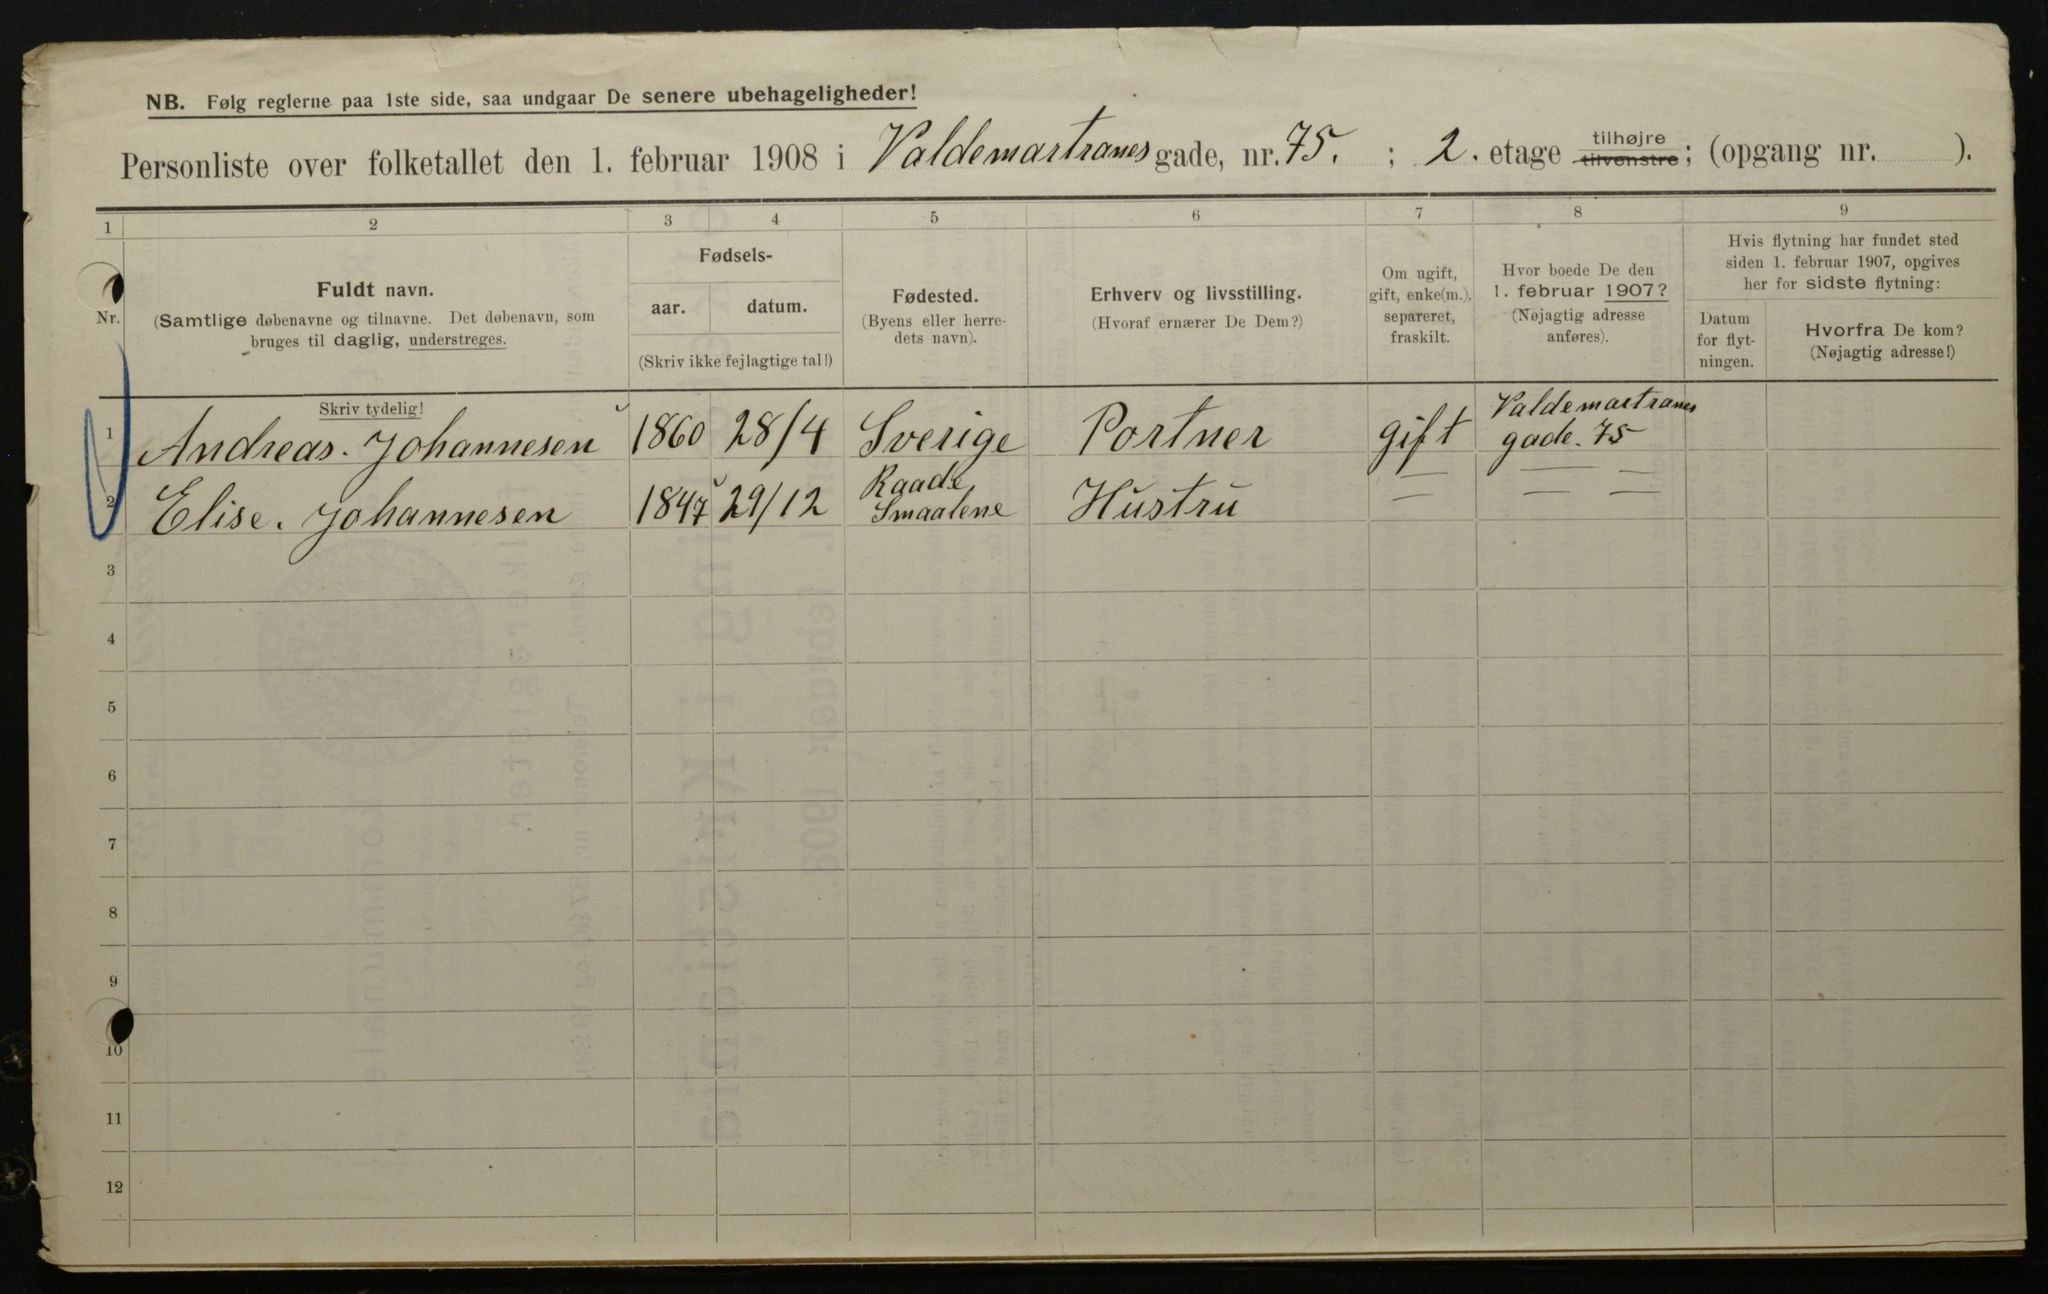 NB. Følg reglerne paa 1ste side, saa undgaar De senere ubehageligheder!
Personliste over folketallet den 1. februar 1908 i Valdemartranes gade, nr. 75. ; 2. etage tilhøjre tilvenstre; (opgang nr. ).
1 2 3 4 5 6 7 8 9
Nr.
Fuldt navn.
(Samtlige døbenavne og tilnavne. Det døbenavn, som
bruges til daglig, understreges.
Skriv tydelig!
Fødsels-
aar. datum.
(Skriv ikke fejlagtige tal!)
Fødested.
(Byens eller herre-
dets navn).
Erhverv og livsstilling.
(Hvoraf ernærer De Dem?)
Om ugift,
gift, enke(m.),
separeret,
fraskilt.
Hvor boede De den
1. februar 1907?
(Nøjagtig adresse
anføres).
Hvis flytning har fundet sted
siden 1. februar 1907, opgives
her for sidste flytning:
Datum
for flyt-
ningen.
Hvorfra De kom?
(Nøjagtig adresse!)
1 Andreas. Johannesen 1860 28/4 Sverige Portner gift Valdemartranes
gade. 75
2 Elise. Johannesen 1847 29/12 Raade
Smaalene Hustru — — —
3
4
5
6
7
8
9
10
11
12